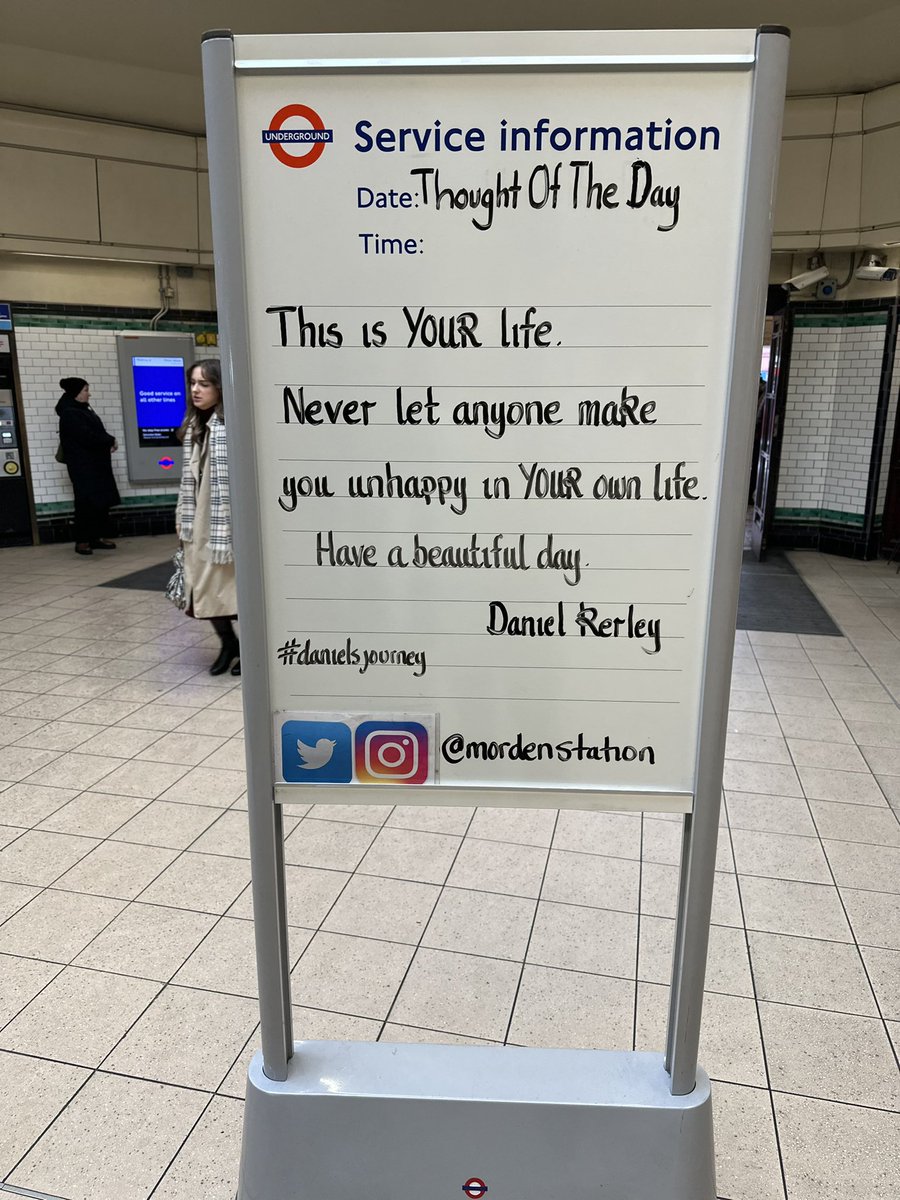 UNDERGROUND
Service information
Date: Thought Of The Day
Time:
This is YOUR life.
Never let anyone make
you unhappy in YOUR own life.
Have a beautiful day.
Daniel Kerley
#danielsjourney
@mordenstation
Good service on
all other lines